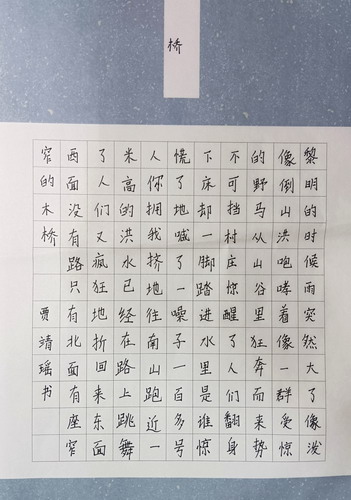 桥
黎明的时候雨突然大了像泼
像倒山洪咆哮着像一群受惊
的野马从山谷里狂奔而来势
不可挡村庄惊醒了人们翻身
下床却一脚踏进水里是谁惊
慌了地喊了一噪子一百多号
人你拥我挤地往南山跑近一
米高的洪水已经在路上跳舞
了人们又疯狂地折回来东面
西面没有路只有北面有座窄
窄的木桥 贾靖瑶书